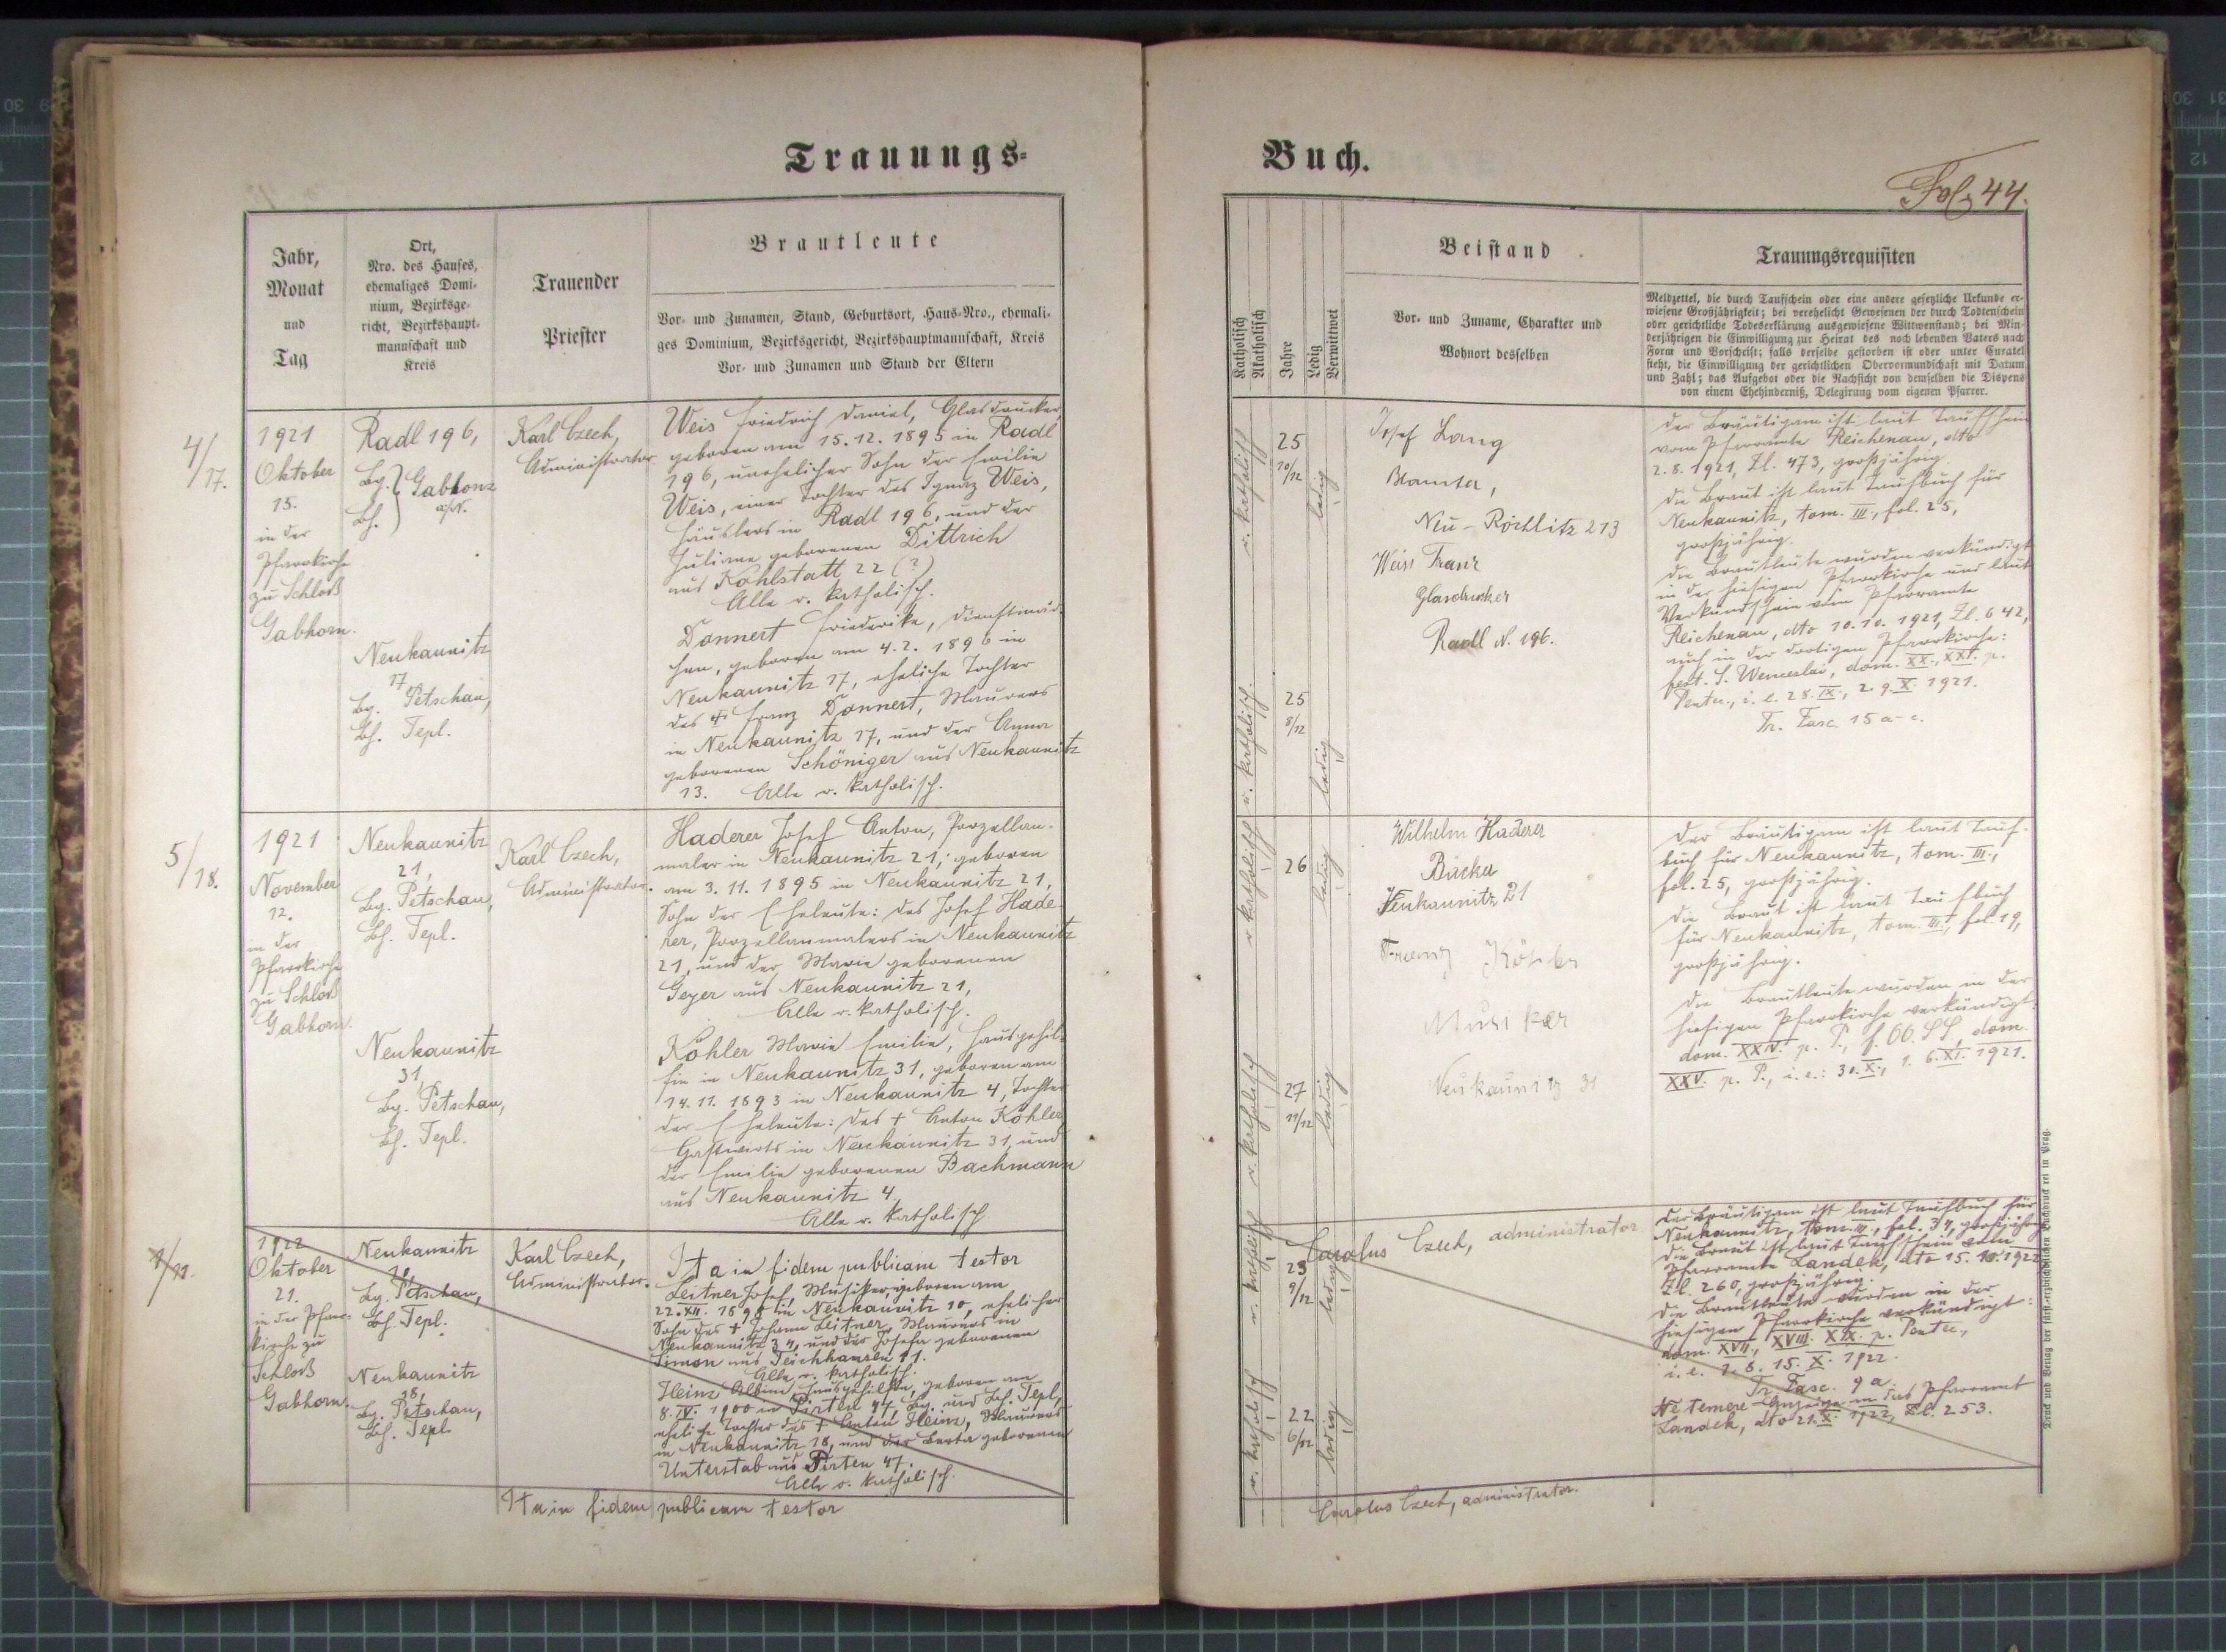 Trauungs-
Buch.
Fol. 44.
Jahr,
Monat
und
Tag
Ort,
Nro. des Hauses,
ehemaliges Domi-
nium, Bezirksge-
richt, Bezirkshaupt-
mannschaft und
Kreis
Trauender
Priester
Brautleute
Vor- und Zunamen, Stand, Geburtsort, Haus-Nro., ehemali-
ges Dominium, Bezirksgericht, Bezirkshauptmannschaft, Kreis
Vor- und Zunamen und Stand der Eltern
Katholisch
Akatholisch
Jahre
Ledig
Verwittwet
Beistand
Vor- und Zuname, Charakter und
Wohnort desselben
Trauungsrequisiten
Meldzettel, die durch Taufschein oder eine andere gesetzliche Urkunde er-
wiesene Großjährigkeit; bei verehelicht Gewesenen der durch Todtenschein
oder gerichtliche Todeserklärung ausgewiesene Wittwenstand; bei Min-
derjährigen die Einwilligung zur Heirat des noch lebenden Vaters nach
Form und Vorschrift; falls derselbe gestorben ist oder unter Curatel
steht, die Einwilligung der gerichtlichen Obervormundschaft mit Datum
und Zahl; das Aufgebot oder die Nachsicht von demselben die Dispens
von einem Ehehinderniß, Delegirung vom eigenen Pfarrer.
4/17.
1921
Oktober
15.
in der
Pfarrkirche
zu Schloß
Gabhorn.
Radl 196,
Bg. } Gablonz
Bh. } a/N.
Neukaunitz
17
Bg. Petschau,
Bh. Tepl.
Karl Czech,
Administrator.
Weis Friedrich Daniel, Glasdrucker,
geboren am 15.12.1895 in Radl
196, unehelicher Sohn der Emilie
Weis, einer Tochter des Ignaz Weis,
Häuslers in Radl 196, und der
Juliane geborenen Dittrich
aus Kohlstatt 22 (?)
Alle r. katholisch.
Donnert Friederike, Dienstmäd-
chen, geboren am 4.2.1896 in
Neukaunitz 17, eheliche Tochter
des † Franz Donnert, Maurers
in Neukaunitz 17, und der Anna
geborenen Schöniger aus Neukaunitz
13. Alle r. katholisch.
r. katholisch
25
10/12
ledig
r. katholisch.
25
8/12
ledig
Josef Lang
Beamter,
Neu-Röhlitz 213
Weiss Franz
Glasdrucker
Radl N. 196.
Der Bräutigam ist laut Taufschein
vom Pfarramte Reichenau, dto
2.8.1921, Zl. 473, großjährig.
Die Braut ist laut Taufbuch für
Neukaunitz, tom. III., fol. 25,
großjährig.
Die Brautleute wurden verkündigt
in der hiesigen Pfarrkirche und laut
Verkündschein vom Pfarramte
Reichenau, dto 10.10.1921, Zl. 642,
auch in der dortigen Pfarrkirche:
fest. S. Wenceslai, dom. XX., XXI. p.
Pentec., i. e. 28.IX., 2. 9.X. 1921.
Tr. Fasc. 15 a-c.
5/18.
1921
November
12.
in der
Pfarrkirche
zu Schloß
Gabhorn.
Neukaunitz
21,
Bg. Petschau,
Bh. Tepl.
Neukaunitz
31,
Bg. Petschau,
Bh. Tepl.
Karl Czech,
Administrator.
Haderer Josef Anton, Porzellan-
maler in Neukaunitz 21, geboren
am 3.11.1895 in Neukaunitz 21,
Sohn der Eheleute: des Josef Hade-
rer, Porzellanmalers in Neukaunitz
21, und der Marie geborenen
Geyer aus Neukaunitz 21,
Alle r. katholisch.
Köhler Marie Emilie, Hausgehil-
fin in Neukaunitz 31, geboren am
14.11.1893 in Neukaunitz 4, Tochter
der Eheleute: des † Anton Köhler,
Gastwirts in Neukaunitz 31, und
der Emilie geborenen Bachmann
aus Neukaunitz 4.
Alle r. katholisch
r. katholisch
26
ledig
r. katholisch
27
11/12
ledig
Wilhelm Haderer
Bäcker
Neukaunitz 21
Franz Köhler
Musiker
Neukaunitz 31
Der Bräutigam ist laut Tauf-
buch für Neukaunitz, tom. III.,
fol. 25, großjährig.
Die Braut ist laut Taufbuch
für Neukaunitz, tom. III., fol. 19,
großjährig.
Die Brautleute wurden in der
hiesigen Pfarrkirche verkündigt:
dom. XXIV. p. P., f. OO. SS., dom.
XXV. p. P., i. e.: 30.X., 1. 6.XI. 1921.
1922
Oktober
21.
in der Pfarr-
kirche zu
Schloß
Gabhorn.
Neukaunitz
Bg. Petschau,
Bh. Tepl.
Neukaunitz
18,
Bg. Petschau,
Bh. Tepl.
Karl Czech,
Administrator.
Ita in fidem publicam testor
Leitner Josef, Musiker, geboren am
22.XII. 1898 in Neukaunitz 10, ehelicher
Sohn des † Johann Leitner, Maurers in
Neukaunitz 34, und der Josefa geborenen
Simon aus Teichhäuseln 11.
Alle r. katholisch.
Heinz Albine, Hausgehilfin, geboren am
8.IV. 1900 in Pirten 47, Bg. und Bh. Tepl,
eheliche Tochter des † Anton Heinz, Maurers
in Neukaunitz 18, und der Berta geborenen
Unterstab aus Pirten 47.
Alle r. katholisch.
r. katholisch
23
9/12
ledig
r. katholisch
22
6/12
ledig
Carolus Czech, administrator
Der Bräutigam ist laut Taufbuch für
Neukaunitz, tom. III., fol. 34, großjährig.
Die Braut ist laut Taufschein vom
Pfarramte Landek, dto 15.10.1922
Zl. 260, großjährig.
Die Brautleute wurden in der
hiesigen Pfarrkirche verkündigt:
dom. XVII., XVIII. XIX. p. Pentec.,
i. e. 1. 8. 15. X. 1922.
Tr. Fasc. 9 a
Ne temere Anzeige an das Pfarramt
Landek, dto 21.X. 1922, Zl. 253.
Ita in fidem publicam testor
Carolus Czech, administrator.
Druck und Verlag der fürst-erzbischöflichen Buchdruckerei in Prag.